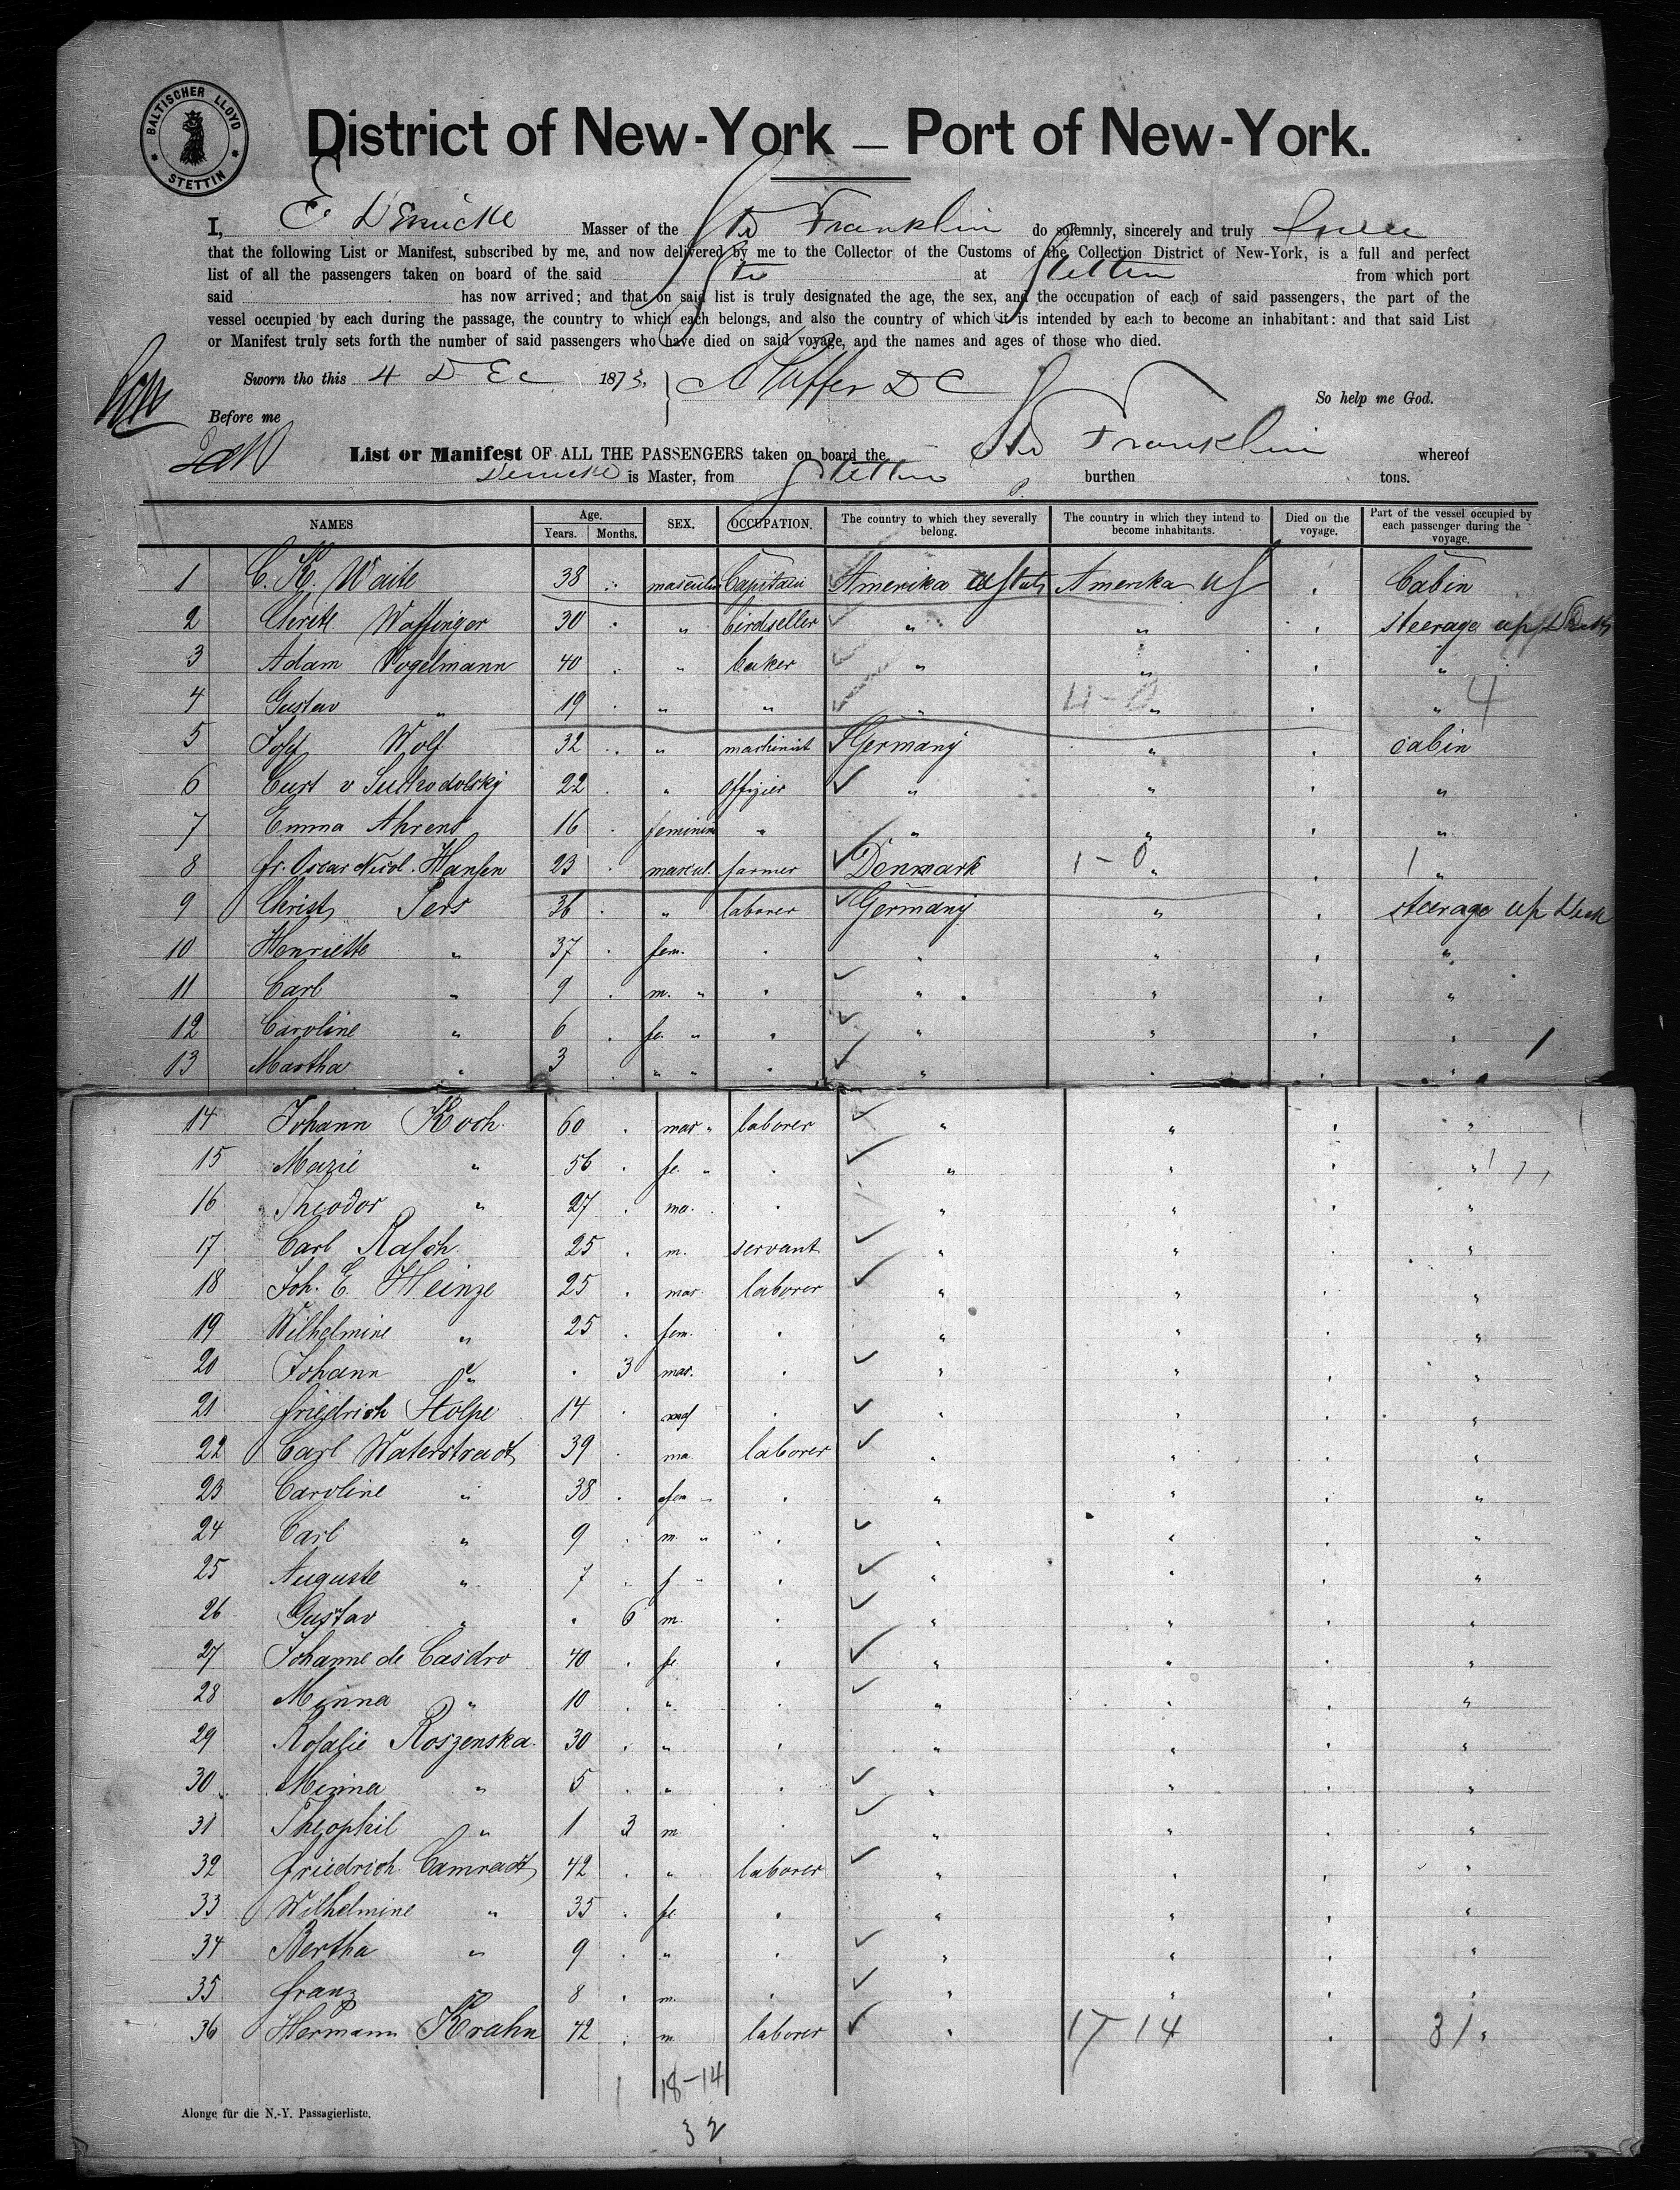 BALTISCHER LLOYD
STETTIN
District of New-York — Port of New-York.
I, E Dereicke Masser of the Str Franklin do solemnly, sincerely and truly swear
that the following List or Manifest, subscribed by me, and now delivered by me to the Collector of the Customs of the Collection District of New-York, is a full and perfect
list of all the passengers taken on board of the said Str at Stettin from which port
said has now arrived; and that on said list is truly designated the age, the sex, and the occupation of each of said passengers, the part of the
vessel occupied by each during the passage, the country to which each belongs, and also the country of which it is intended by each to become an inhabitant: and that said List
or Manifest truly sets forth the number of said passengers who have died on said voyage, and the names and ages of those who died.
Sworn tho this 4 Dec 1873. } DC
So help me God.
Before me
List or Manifest OF ALL THE PASSENGERS taken on board the Str Franklin whereof
is Master, from Stettin burthen tons.
NAMES Age. Years. Months. SEX. OCCUPATION. The country to which they severally belong. The country in which they intend to become inhabitants. Died on the voyage. Part of the vessel occupied by each passenger during the voyage.
1 C. K. Waite 38 masculin Capitain Amerika UStats Amerika US Cabin
2 Waffinger 30 " birdseller " " steerage up Deck
3 Adam Vogelmann 40 " baker " " "
4 Gustav " 19 " " " 4-0 " " 4
5 Wolf 32 " machinist Germany " cabin
6 Curt v Suchodolsky 22 " offizier " " "
7 Emma Ahrens 16 feminin " " " "
8 fr. Oscar Nicol. Hansen 23 mascul. farmer Denmark 1-0 " 1 "
9 Christ Pers 36 " laborer Germany " steerage up Deck
10 Henriette " 37 fem. " " " "
11 Carl " 9 m. " " " " "
12 Caroline " 6 fe. " " " " "
13 Martha " 3 " " " " " "
14 Johann Koch 60 mas " laborer " " "
15 Marie " 56 fe. " " " "
16 Theodor " 27 ma. " " "
17 Carl Rasch 25 m. servant " " "
18 Joh. E. Heinze 25 mas. laborer " " "
19 Wilhelmine " 25 fem. " " "
20 Johann " 3 mas. " " "
21 friedrich Stolpe 14 " " "
22 Carl Waterstradt 39 ma. laborer " " "
23 Caroline " 38 fem " " " "
24 Carl " 9 m. " " " "
25 Auguste " 7 f " " " "
26 Gustav " 6 m. " " "
27 Johanne de Casdro 40 fe " " "
28 Minna " 10 " " " "
29 Rosalie Roszenska 30 " " " "
30 Minna " 5 " " " "
31 Theophil " 1 3 m " " "
32 friedrich Camradt 42 " laborer " " "
33 Wilhelmine " 35 fe. " " "
34 Bertha " 9 " " " "
35 franz 8 m. " " "
36 Hermann Krahn 42 m laborer " 17 14 31
1 18-14
32
Alonge für die N.-Y. Passagierliste.